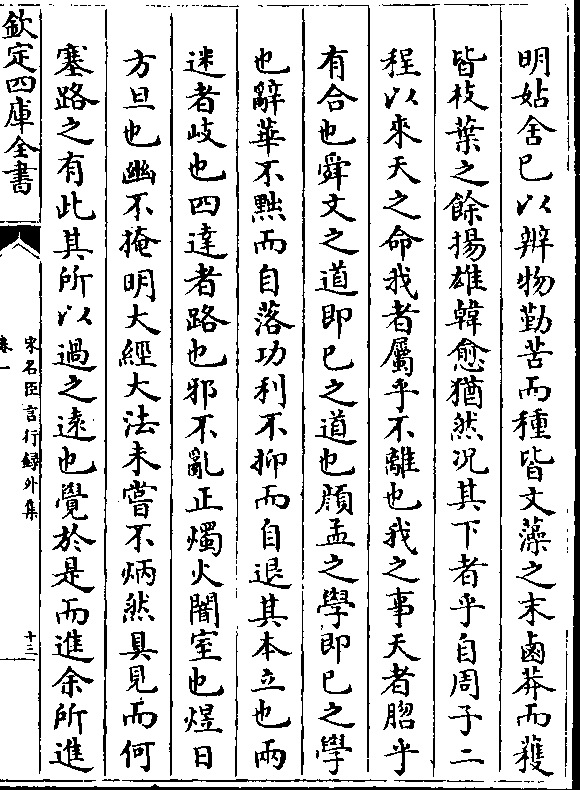 明姑舍已以辨物勤苦而種皆文藻之末鹵莽而穫
皆枝葉之餘揚雄韓愈猶然况其下者乎自周子二
程以來天之命我者屬乎不離也我之事天者脗乎
有合也舜文之道即已之道也顔孟之學即已之學
也辭華不黜而自落功利不抑而自退其本立也兩
迷者歧也四達者路也邪不亂正燭火闇室也煜日
方旦也幽不掩明大經大法未嘗不炳然具見而何
塞路之有此其所以過之逺也覺於是而進余所進
欽定四庫全書
宋名臣言行録外集
卷一
十三